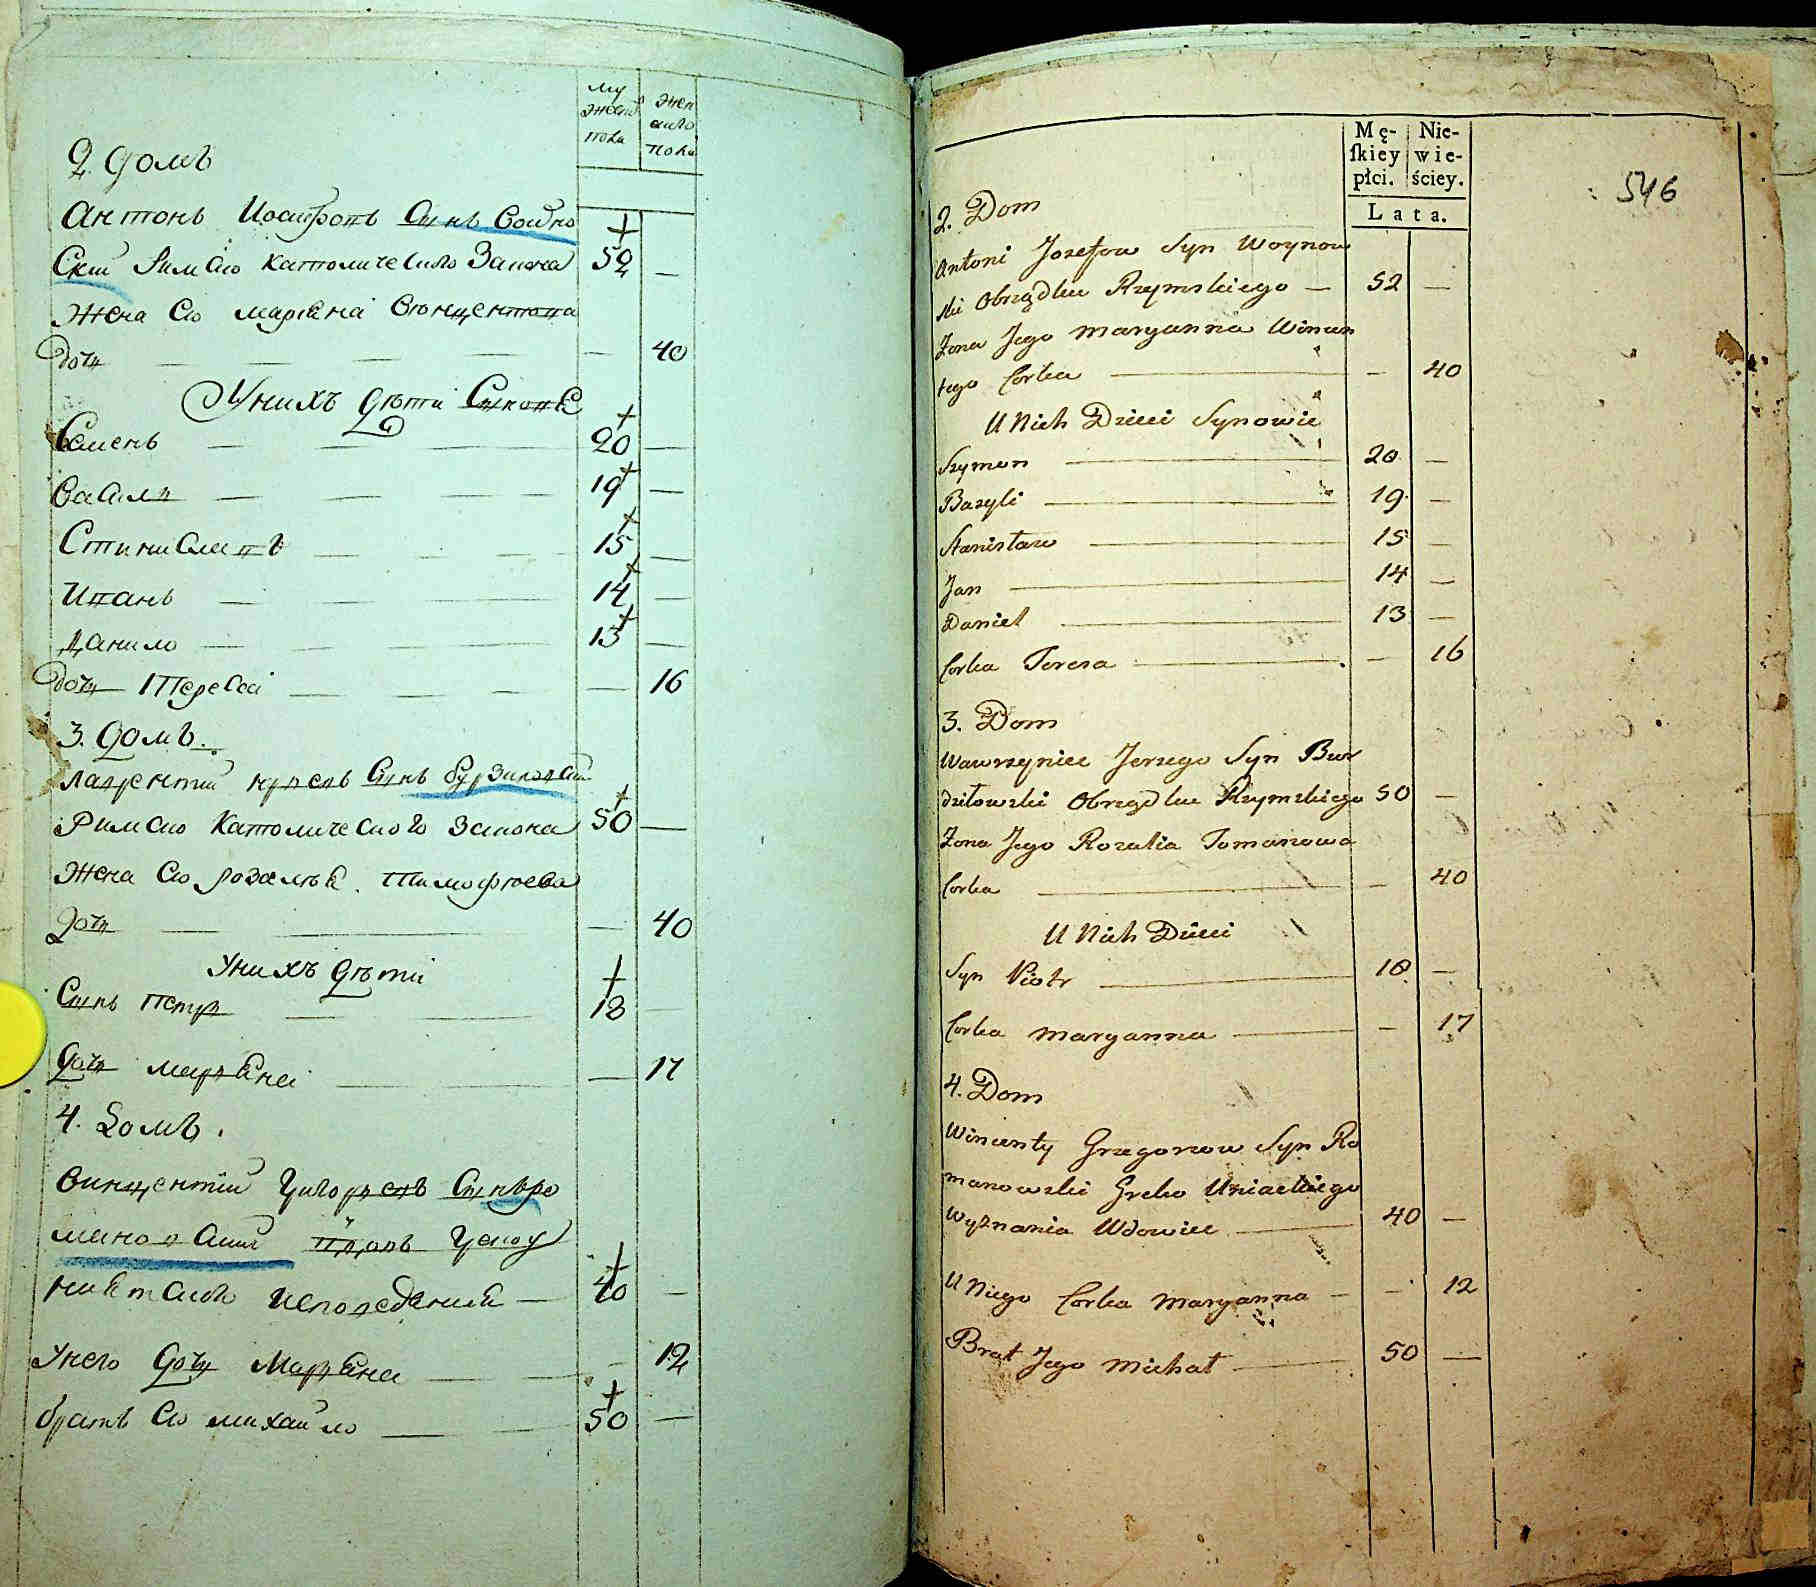 му
жеска
пола
жен
скаго
пола
2 домъ
Антонъ Иосифовъ Сынъ Война
Скій Римскаго Католическаго Закона 52 —
Жена его марияна Винцентова
дочь — — — — 40
У нихъ дети Сыновя
Семенъ — — — 20 —
Василь — — — — 19 —
Станиславъ — — — 15 —
Иванъ — — — — 14 —
Данило — — — — 13 —
дочь Тереса — — — — 16
3. домъ.
лаврентий юревъ Сынъ бурзиловский
Римскаго Католическаго Закона 50 —
Жена его розалия Тимофеева
дочь — — — 40
У нихъ дети
Сынъ Петръ — — 18 —
дочь марияна — — 17
4. домъ.
Винцентий Григоревъ Сынъ Ро
мановский вдовъ Греко у
ниятскаго исповедания — 40 —
У него дочь Марияна — — — 12
братъ его михайло — — 50 —
Mę-
ſkiey
płci.
Nie-
wie-
ściey.
Lata.
546
2. Dom
Antoni Jozefow Syn Woynow
ski Obrządku Rzymskiego — 52 —
Zona Jego Maryanna Wincen
tego Corka — — 40
U Nich Dzieci Synowie
Szymon — 20 —
Bazyli — 19 —
Stanisław — 15 —
Jan — 14 —
Daniel — 13 —
Corka Teresa — — 16
3. Dom
Wawrzyniec Jerzego Syn Bur
dziłowski Obrządku Rzymskiego 50 —
Zona Jego Rozalia Tomaszowa
Corka — — 40
U Nich Dzieci
Syn Piotr — 18 —
Corka Maryanna — — 17
4. Dom
Wincenty Grzegorzow Syn Ro
manowski Greko Uniackiego
Wyznania Wdowiec — 40 —
U Niego Corka Maryanna — — 12
Brat Jego Michał — 50 —